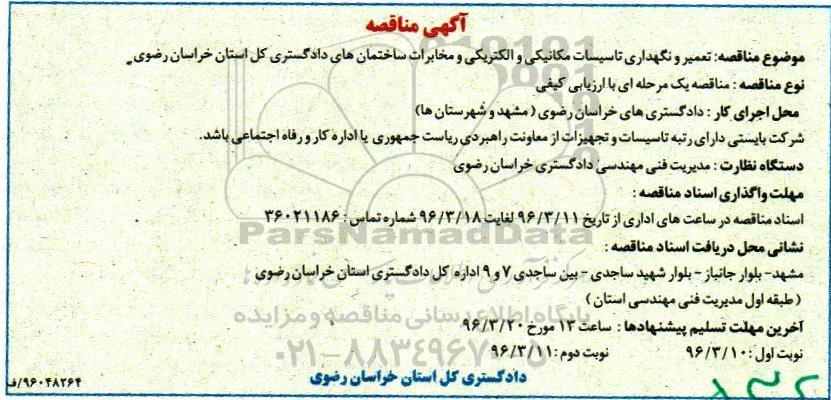 آگهی مناقصه
موضوع مناقصه: تعمیر و نگهداری تاسیسات مکانیکی و الکتریکی و مخابرات ساختمان های دادگستری کل استان خراسان رضوی.
نوع مناقصه : مناقصه یک مرحله ای با ارزیابی کیفی
محل اجرای کار : دادگستری های خراسان رضوی ( مشهد و شهرستان ها)
شرکت بایستی دارای رتبه تاسیسات و تجهیزات از معاونت راهبردی ریاست جمهوری یا اداره کار و رفاه اجتماعی باشد.
دستگاه نظارت : مدیریت فنی مهندسی دادگستری خراسان رضوی
مهلت واگذاری اسناد مناقصه :
اسناد مناقصه در ساعت های اداری از تاریخ ۹۶/۳/۱۱ لغایت ۹۶/۳/۱۸ شماره تماس : ۳۶۰۲۱۱۸۶
ParsNamadData
نشانی محل دریافت اسناد مناقصه :
مشهد- بلوار جانباز - بلوار شهید ساجدی - بین ساجدی ۷ و ۹ اداره کل دادگستری استان خراسان رضوی
( طبقه اول مدیریت فنی مهندسی استان )
پایگاه اطلاع رسانی مناقصه و مزایده
آخرین مهلت تسلیم پیشنهادها : ساعت ۱۳ مورخ ۹۶/۳/۲۰
نوبت اول : ۹۶/۳/۱۰ نوبت دوم : ۹۶/۳/۱۱
۰۲۱-۸۸۳۴۹۶۷۰-۵
دادگستری کل استان خراسان رضوی
۹۶۰۴۸۲۶۴/ف